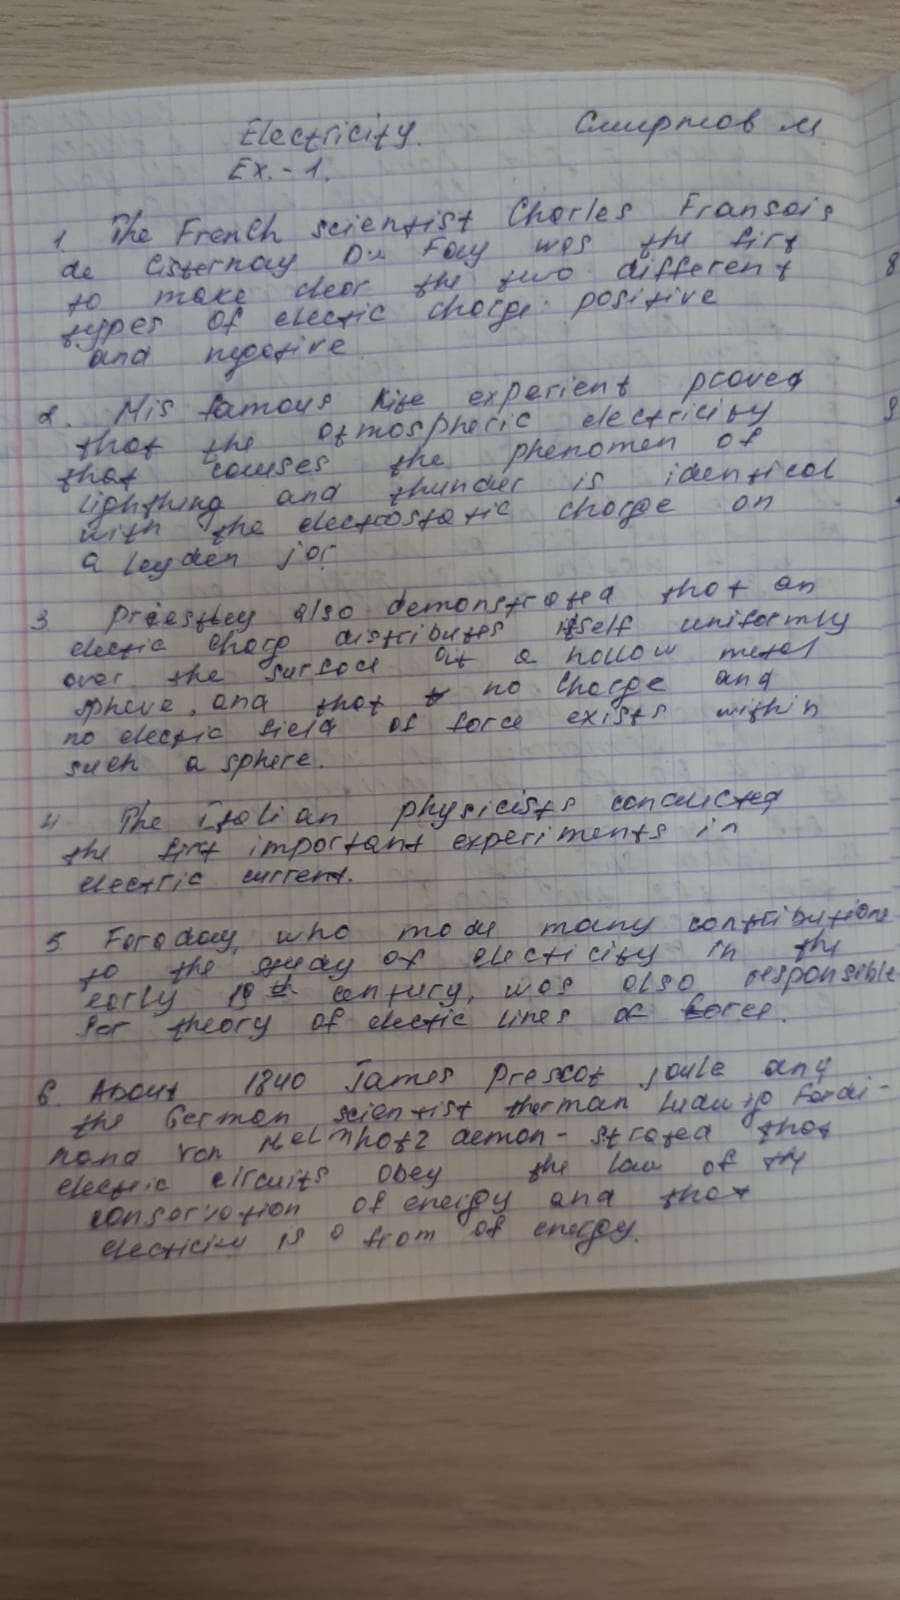 Electricity. Смиртов М
Ex.-1.
1 The French scientist Charles Fransois
de Cisternay Du Fay was the firt
to make clear the two different
types of electic charge: positive
and negative
2. His famous kite experient proved
that the atmospheric electricity
that causes the phenomen of
lighthing and thunder is identical
with the electrostatic charge on
a leyden jar
3 Priestley also demonstrated that an
electic charg distributes itself uniformly
over the surface of a hollow metal
sphere, and that no charge and
no electric field of force exists within
such a sphere.
4 The italian physicists conducted
the firt important experiments in
electric current.
5 Faraday, who made many contributions
to the study of electicity in the
early 19th century, was also responsible
for theory of electic lines of force.
6. About 1840 James Prescot joule and
the German scientist therman Ludwig Ferdi-
nand von Helmhotz demon- strated that
electric circuits obey the law of the
conservation of energy and that
electicity is a from of energy.
8
9